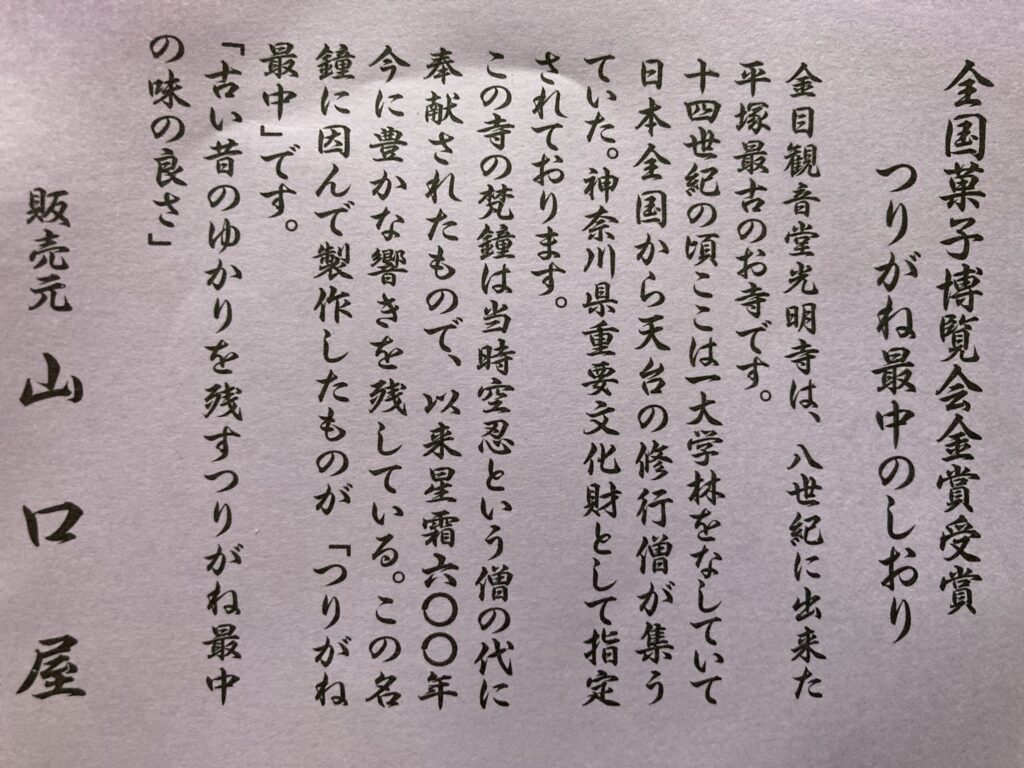 全国菓子博覧会金賞受賞
つりがね最中のしおり
金目観音堂光明寺は、八世紀に出来た
平塚最古のお寺です。
十四世紀の頃ここは一大学林をなしていて
日本全国から天台の修行僧が集う
ていた。神奈川県重要文化財として指定
されております。
この寺の梵鐘は当時空忍という僧の代に
奉献されたもので、以来星霜六〇〇年
今に豊かな響きを残している。この名
鐘に因んで製作したものが「つりがね
最中」です。
「古い昔のゆかりを残すつりがね最中
の味の良さ」
販売元 山口屋